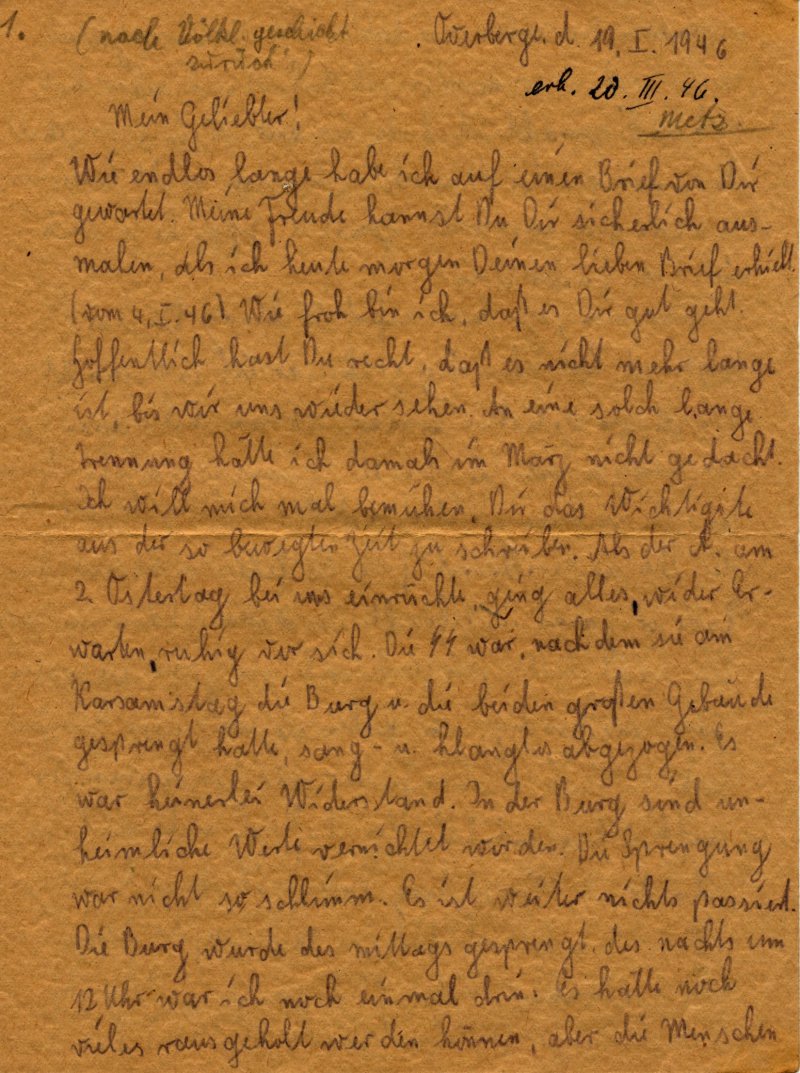 1.
(nach Völkl. geschickt
zurück)
Overberge, d. 19. I. 1946
erh. 20. III. 46.
Metz.
Mein Geliebter!
Wie endlos lange habe ich auf einen Brief von Dir
gewartet. Meine Freude kannst Du Dir sicherlich aus-
malen, als ich heute morgen Deinen lieben Brief erhielt.
(vom 4. I. 46) Wie froh bin ich, daß es Dir gut geht.
Hoffentlich hast Du recht, daß es nicht mehr lange
ist, bis wir uns wieder sehen. An eine solch lange
Trennung hätte ich damals im März nicht gedacht.
Ich will mich mal bemühen, Dir das Wichtigste
aus der so bewegten Zeit zu schreiben. Als der A. am
2. Ostertag bei uns einrückte, ging alles, wider Er-
warten, ruhig vor sich. Die SS war, nachdem sie am
Karsamstag die Burg u. die beiden großen Gebäude
gesprengt hatte, sang- u. klanglos abgezogen. Es
war keinerlei Widerstand. In der Burg sind un-
heimliche Werte vernichtet worden. Die Sprengung
war nicht so schlimm. Es ist weiter nichts passiert.
Die Burg wurde des mittags gesprengt, des nachts um
12 Uhr war ich noch einmal drin. Es hätte noch
vieles rausgeholt werden können, aber die Menschen